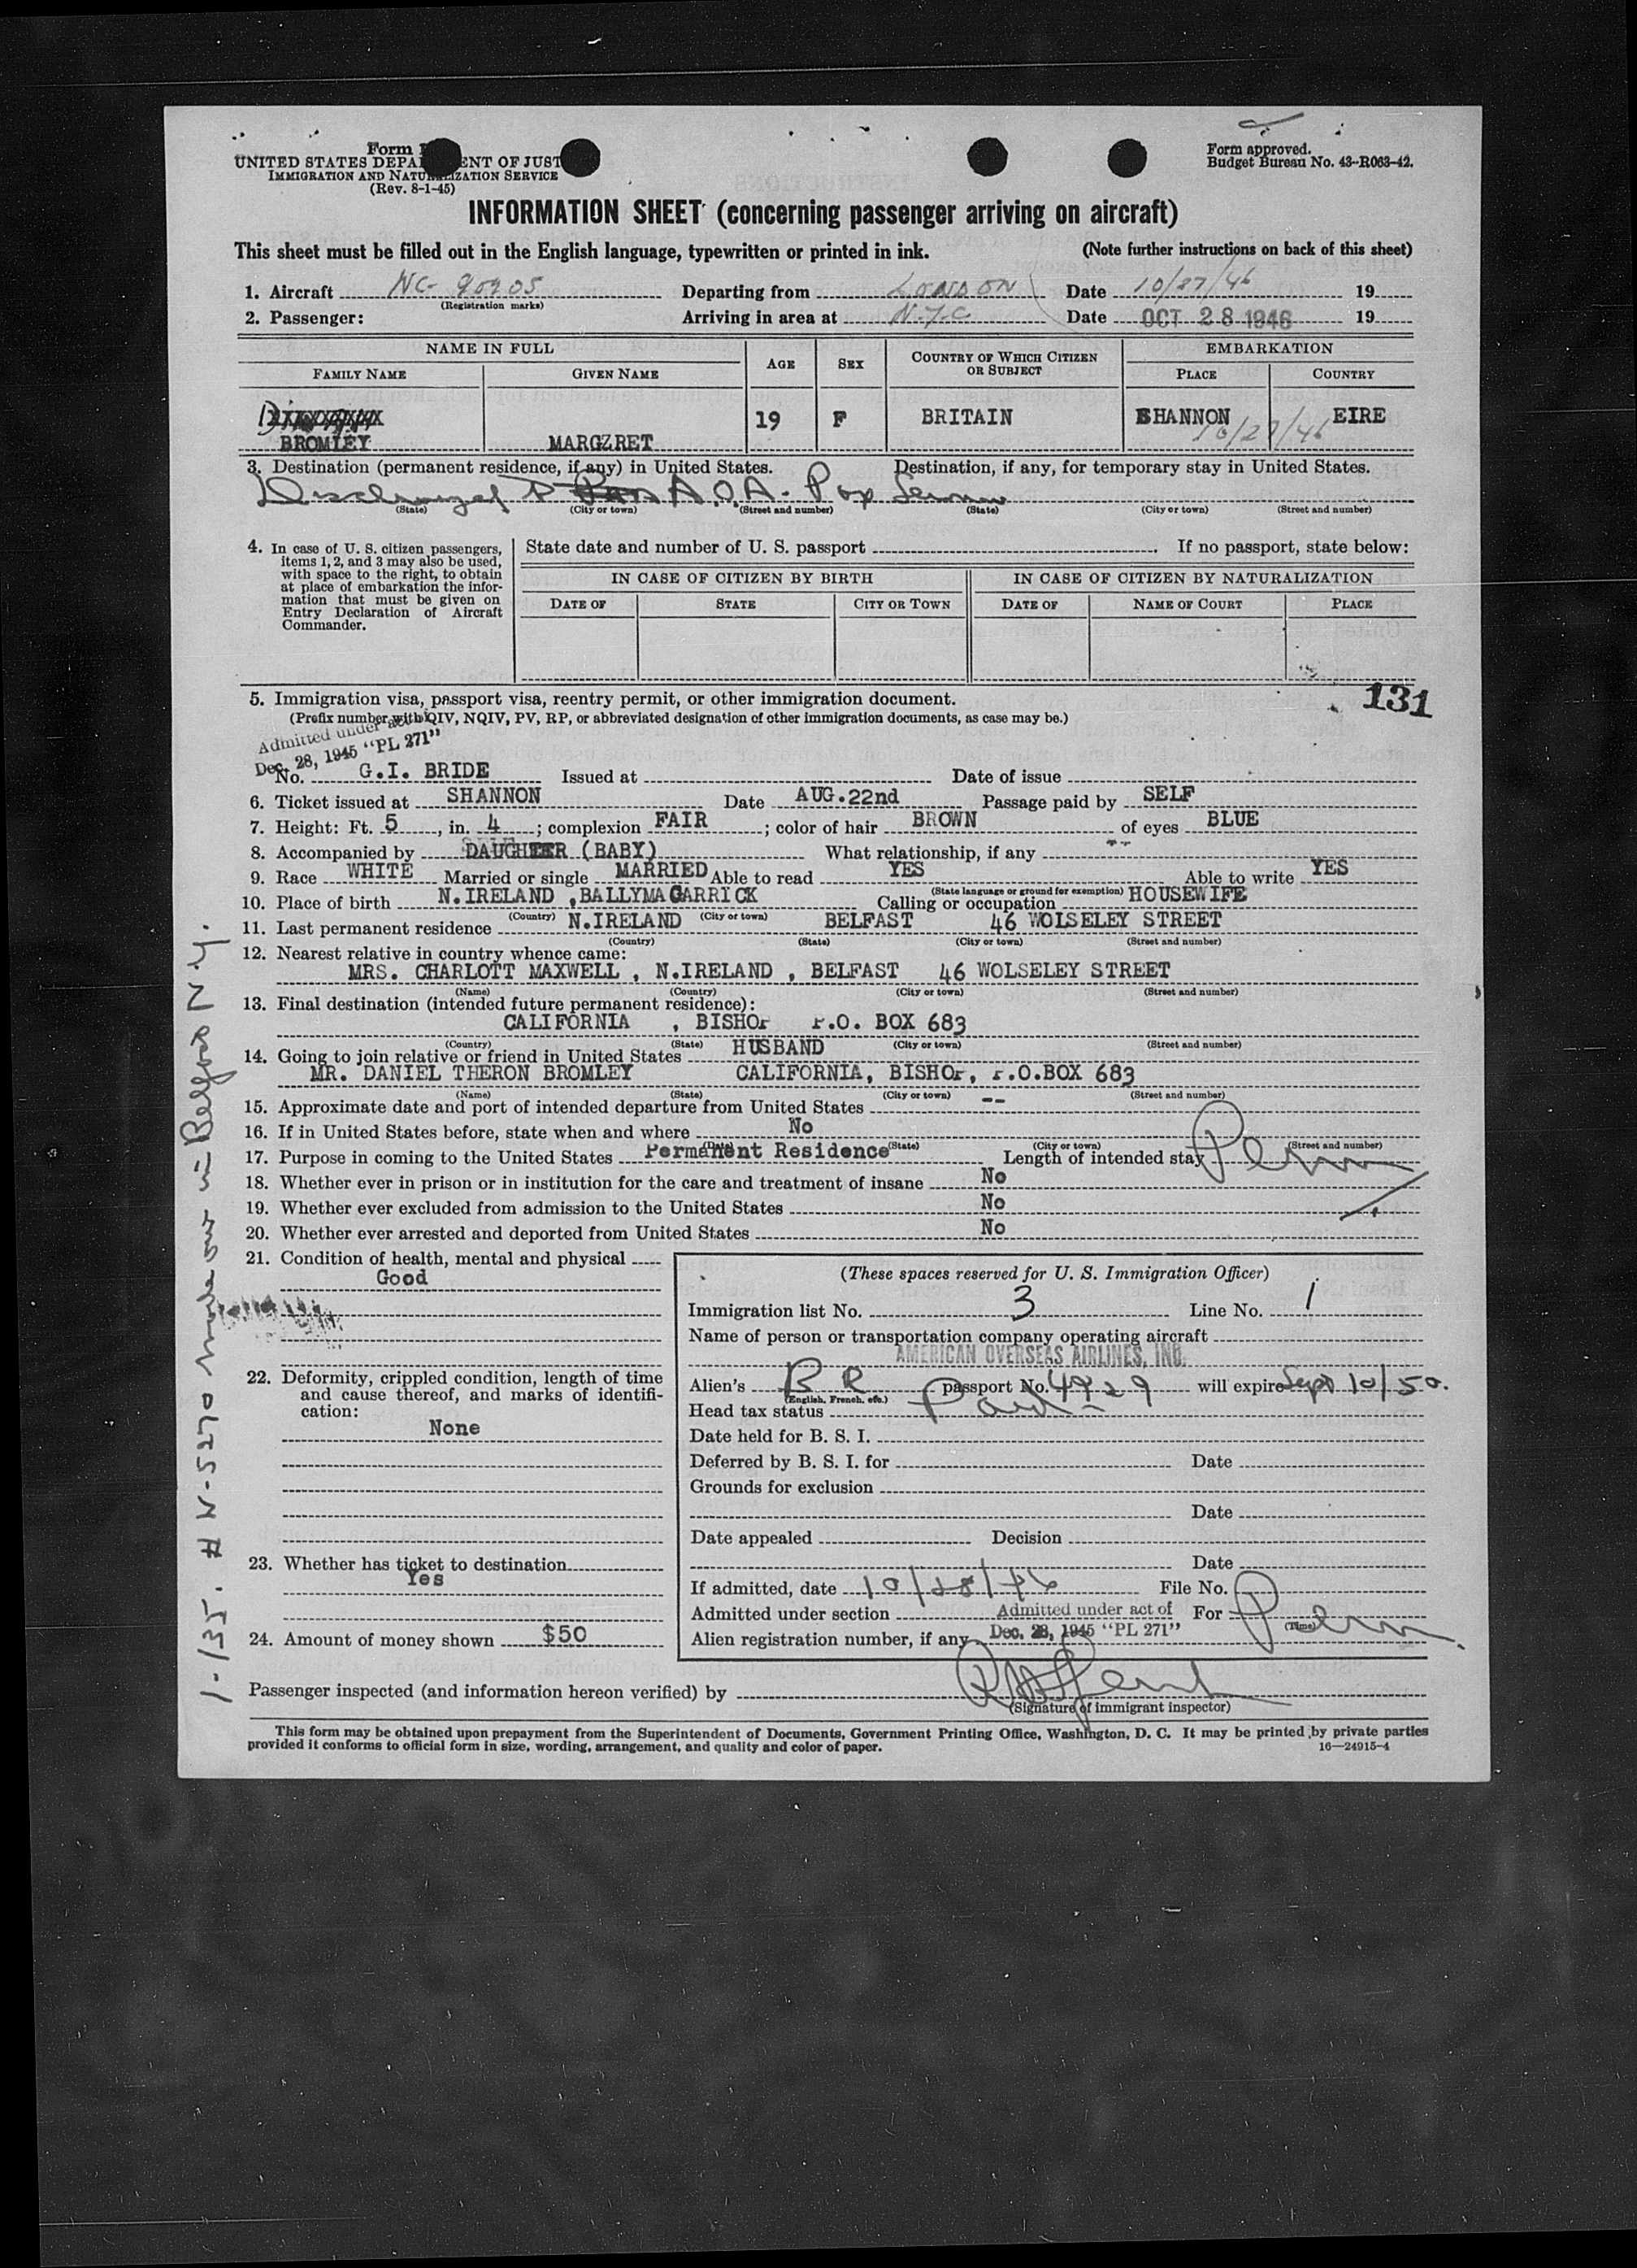 Form
UNITED STATES DEPA ENT OF JUST
IMMIGRATION AND NATURALIZATION SERVICE
(Rev. 8-1-45)
Form approved.
Budget Bureau No. 43-R063-42.
INFORMATION SHEET (concerning passenger arriving on aircraft)
This sheet must be filled out in the English language, typewritten or printed in ink. (Note further instructions on back of this sheet)
1. Aircraft NC- 90905 Departing from LONDON Date 10/27/46 19
(Registration marks)
2. Passenger: Arriving in area at N.Y.C Date OCT 28 1946 19
NAME IN FULL AGE SEX COUNTRY OF WHICH CITIZEN OR SUBJECT EMBARKATION
FAMILY NAME GIVEN NAME PLACE COUNTRY
BROMLEY MARGZRET 19 F BRITAIN SHANNON EIRE
10/27/46
3. Destination (permanent residence, if any) in United States. Destination, if any, for temporary stay in United States.
A.O.A.
(State) (City or town) (Street and number) (State) (City or town) (Street and number)
4. In case of U. S. citizen passengers, items 1, 2, and 3 may also be used, with space to the right, to obtain at place of embarkation the information that must be given on Entry Declaration of Aircraft Commander.
State date and number of U. S. passport . If no passport, state below:
IN CASE OF CITIZEN BY BIRTH IN CASE OF CITIZEN BY NATURALIZATION
DATE OF STATE CITY OR TOWN DATE OF NAME OF COURT PLACE
5. Immigration visa, passport visa, reentry permit, or other immigration document. 131
(Prefix number with QIV, NQIV, PV, RP, or abbreviated designation of other immigration documents, as case may be.)
Admitted under act of
Dec. 28, 1945 "PL 271"
No. G.I. BRIDE Issued at Date of issue
6. Ticket issued at SHANNON Date AUG.22nd Passage paid by SELF
7. Height: Ft. 5, in. 4; complexion FAIR; color of hair BROWN of eyes BLUE
8. Accompanied by DAUGHTER (BABY) What relationship, if any --
9. Race WHITE Married or single MARRIED Able to read YES Able to write YES
(State language or ground for exemption)
10. Place of birth N.IRELAND ,BALLYMAGARRICK Calling or occupation HOUSEWIFE
(Country) (City or town)
11. Last permanent residence N.IRELAND BELFAST 46 WOLSELEY STREET
(Country) (State) (City or town) (Street and number)
12. Nearest relative in country whence came:
MRS. CHARLOTT MAXWELL , N.IRELAND , BELFAST 46 WOLSELEY STREET
(Name) (Country) (City or town) (Street and number)
13. Final destination (intended future permanent residence):
CALIFORNIA , BISHOP P.O. BOX 683
(Country) (State) (City or town) (Street and number)
14. Going to join relative or friend in United States HUSBAND
MR. DANIEL THERON BROMLEY CALIFORNIA, BISHOP, P.O.BOX 683
(Name) (State) (City or town) (Street and number)
15. Approximate date and port of intended departure from United States --
16. If in United States before, state when and where No
(Date) (State) (City or town) (Street and number)
17. Purpose in coming to the United States Permanent Residence Length of intended stay Perm
18. Whether ever in prison or in institution for the care and treatment of insane No
19. Whether ever excluded from admission to the United States No
20. Whether ever arrested and deported from United States No
21. Condition of health, mental and physical
Good
22. Deformity, crippled condition, length of time and cause thereof, and marks of identification:
None
23. Whether has ticket to destination
Yes
24. Amount of money shown $50
(These spaces reserved for U. S. Immigration Officer)
Immigration list No. 3 Line No. 1
Name of person or transportation company operating aircraft
AMERICAN OVERSEAS AIRLINES, INC.
Alien's BR passport No. 4929 will expire Sept 10/50.
(English, French, etc.)
Head tax status Paid
Date held for B. S. I.
Deferred by B. S. I. for Date
Grounds for exclusion
Date
Date appealed Decision
Date
If admitted, date 10/28/46 File No.
Admitted under section Admitted under act of For Perm.
(Time)
Alien registration number, if any Dec. 28, 1945 "PL 271"
Passenger inspected (and information hereon verified) by
(Signature of immigrant inspector)
This form may be obtained upon prepayment from the Superintendent of Documents, Government Printing Office, Washington, D. C. It may be printed by private parties
provided it conforms to official form in size, wording, arrangement, and quality and color of paper. 16—24915-4
1-135. # N-5270 made out in Belfast N.I.